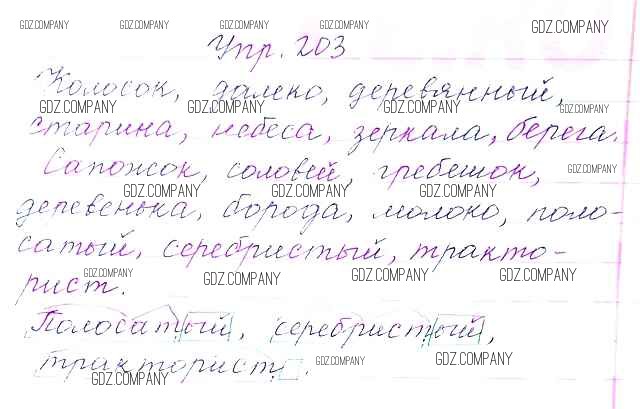 GDZ.COMPANY GDZ.COMPANY GDZ.COMPANY GDZ.COMPANY GDZ.COMPANY
Упр. 203
Колосок, далеко, деревянный,
GDZ.COMPANY GDZ.COMPANY GDZ.COMPANY GDZ.COMPANY
старина, небеса, зеркала, берега.
Сапожок, соловей, гребешок,
GDZ.COMPANY
GDZ.COMPANY GDZ.COMPANY GDZ.COMPANY
деревенька, борода, молоко, поло-
сатый, серебристый, тракто-
GDZ.COMPANY GDZ.COMPANY GDZ.COMPANY GDZ.COMPANY
рист.
Полосатый, серебристый,
тракторист.
GDZ.COMPANY GDZ.COMPANY GDZ.COMPANY